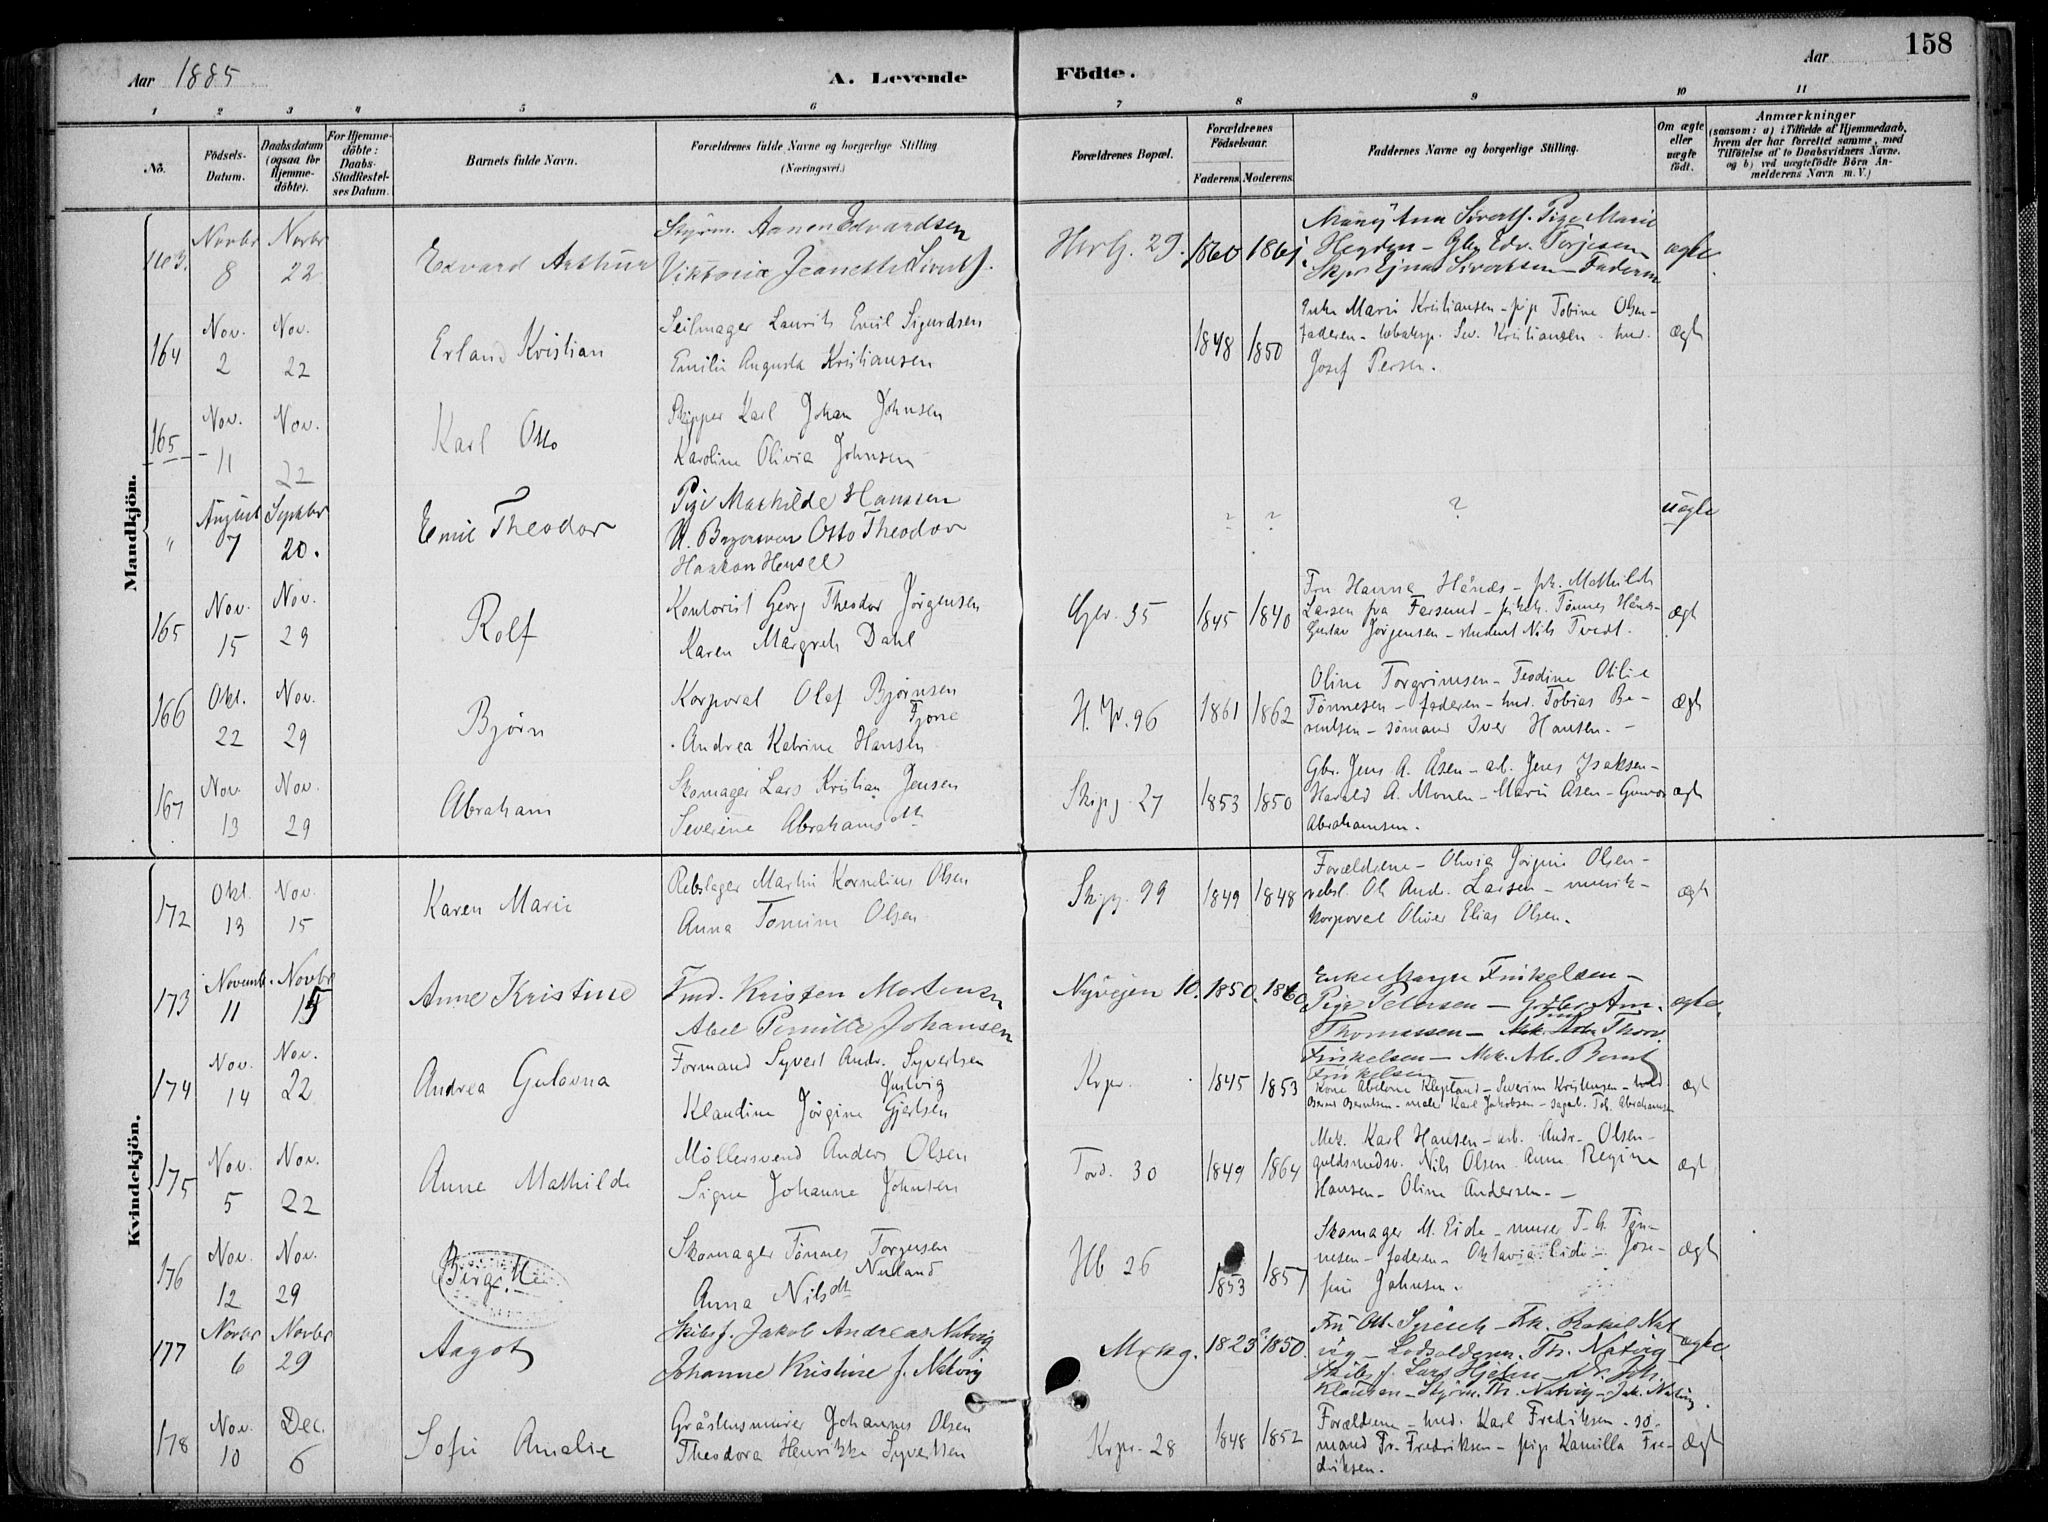 158
Aar 1885
A. Levende Födte.
Aar
1 2 3 4 5 6 7 8 9 10 11
No.
Födsels-Datum.
Daabsdatum (ogsaa for Hjemme-döbte).
For Hjemme-döbte: Daabs-Stadfæstel-ses Datum.
Barnets fulde Navn.
Forældrenes fulde Navne og borgerlige Stilling (Næringsvei.)
Forældrenes Bopæl.
Forældrenes Födselsaar.
Faderens. Moderens.
Faddernes Navne og borgerlige Stilling.
Om ægte eller uægte födt.
Anmærkninger
(saasom: a) i Tilfælde af Hjemmedaab, hvem der har forrettet samme, med Tilföielse af to Daabsvidners Navne. og b) ved uægtefödte Börn An-melderens Navn m. V.)
Mandkjön.
Novbr 8 Novbr 22 Edvard Arthur
Styrm. Aanen Edvardsen
Viktoria Jeanette Siverts.
29. 1860 1861
Pige Marie
Heyden - Edv. Torjesen
Sivertsen - Faderen
ægte
164 Nov. 2 Nov. 22 Erland Kristian
Seilmager Laurits Emil Sigurdsen
Emilie Augusta Kristiansen
1848 1850
Enke Marie Kristiansen - pige Tobine Olsen -
Faderen - Kristiansen -
Josef Persen.
ægt
165 Nov. 11 Nov. 22 Karl Otto
Skipper Karl Johan Johnsen
Karoline Olivia Johnsen
" August 7 Septbr 20. Emil Theodor
Pige Mathilde Hanssen
Otto Theodor
Haakon Hensel
? ? ? uægte
165 Nov. 15 Nov. 29 Rolf
Kontorist Georg Theodor Jörgensen
Karen Margreth Dahl
35 1845 1840
Fru Hanna Hånes - frk. Mathilde
Larsen fra Farsund - Tönnes Hånes -
Gustav Jörgensen - student Nils Tvedt.
ægt
166 Okt. 22 Nov. 29 Björn
Korporal Olaf Björnsen
Tjore
Andrea Katrine Hansen
96 1861 1862
Oline Torgrimsen - Teodine Otilie
Tönnesen - faderen - Tobias Be-
rentsen - sömand Iver Hansen. -
ægt
167 Nov. 13 Nov. 29 Abraham
Skomager Lars Kristian Jensen
Severine Abrahamsdtr
Skipg. 27 1853 1850
Gbr. Jens A. Åsen - arb. Jens Isaksen -
Harald A. Monen - Marie Åsen - Gunvor
Abrahamsen.
ægt
Kvindekjön.
172 Okt. 13 Nov. 15 Karen Marie
Rebslager Martin Kornelius Olsen
Anna Tomine Olsen
Skipg. 99 1849 1848
Forældrene - Olivia Jörgine Olsen -
rebsl. Ol. And. Larsen - musik-
korporal Oliver Elias Olsen.
ægt
173 Novemb. 11 Novbr 15 Anne Kristine
Kristen Mortensen
Abel Pernille Johansen
Nyvejen 10. 1850. 1860
Enke Finkelsen -
Pige Petersen -
Thomassen - Thorv.
Finkelsen - Mek. Arb. Bernt
Finkelsen
ægte
174 Nov. 14 Nov. 22 Andrea Gulovna
Formand Syvert Andr. Syvertsen
Justvig
Klaudine Jörgine Gjertsen
Krpr. 1845 1853
Kone Abelone Klepland - Severine Kristensen -
Bernt Berntsen - maler Karl Jakobsen - Tob. Abrahamsen
ægt
175 Nov. 5 Nov. 22 Anne Mathilde
Möllersvend Anders Olsen
Signe Johanne Johnsen
Tord. 30 1849 1864
Mek. Karl Hansen - arb. Andr. Olsen -
guldsmedsv. Nils Olsen. Anne Regine
Hansen - Oline Andersen. -
ægt
176 Nov. 12 Nov. 29 Birgitte
Skomager Tönnes Torgersen
Nuland
Anna Nilsdtr
Hb. 26 1853 1857
Skomager M. Eide - murer T. A. Tön-
nesen - faderen - Oktavia Eide - Jose-
fine Johnsen.
ægt
177 Novbr 6 Novbr 29 Aagot
Skibsf. Jakob Andreas Natvig
Johanne Kristine f. Natvig
1825 1850.
Frk. Rakel Nat-
vig - Lodsolderm. Th. Natvig -
Skibsf. Lars Hjelm - Joh.
Klausen - Styrm. Th. Natvig - Jak. Natvig.
ægte
178 Nov. 10 Dec. 6 Sofie Amalie
Gråstensmurer Johannes Olsen
Theodora Henrikke Syvertsen
Krpr. 28 1848 1852
Forældrene - Karl Fredriksen - sö-
mand Fr. Fredriksen - pige Kamilla Fre-
driksen.
ægt